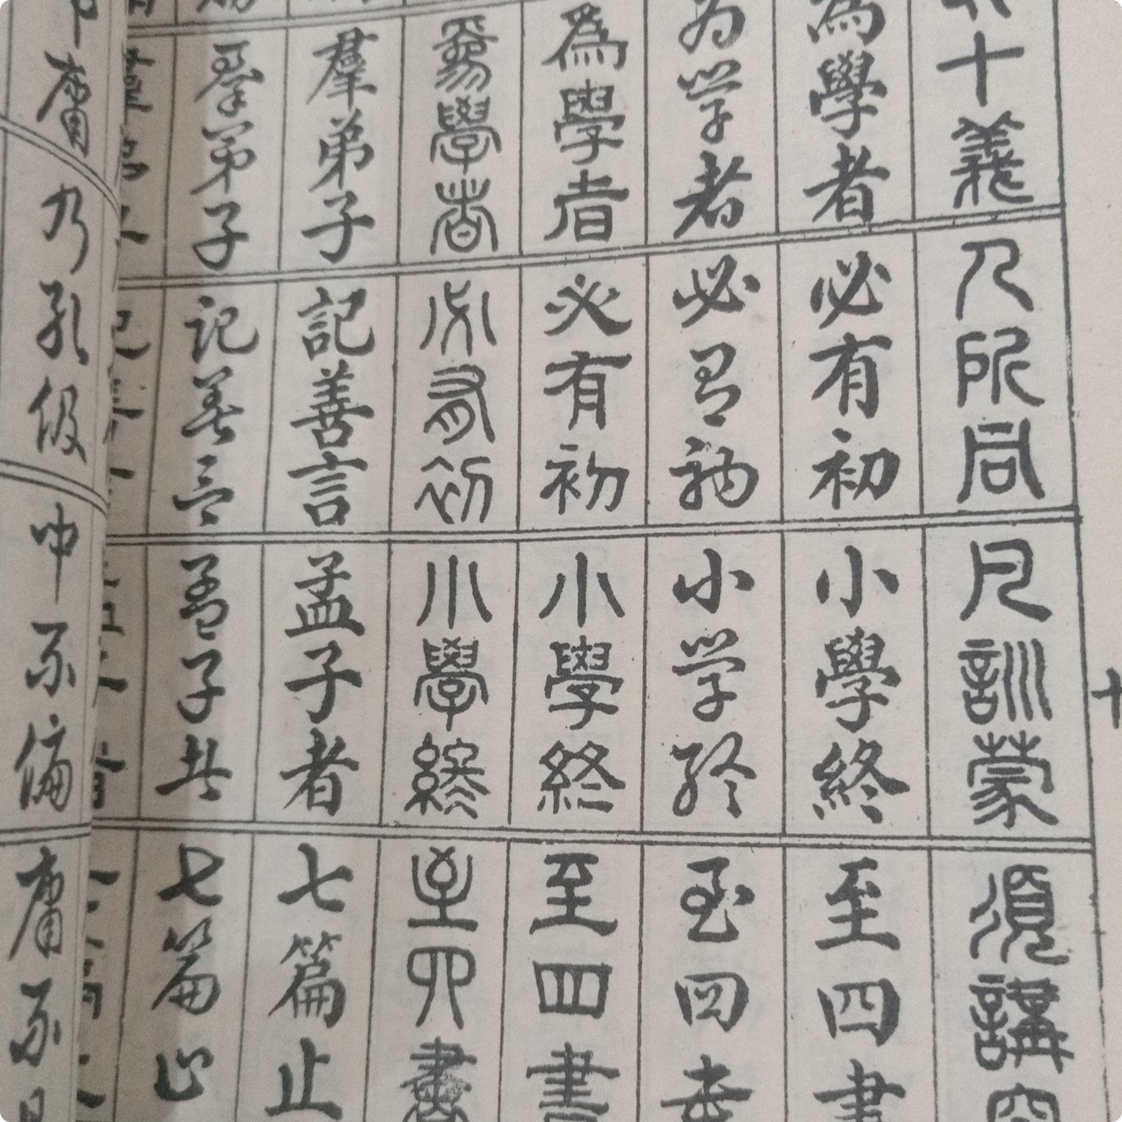 十
十義人所同凡訓蒙須講
為學者必有初小學終至四書
为学者必有初小学终至四书
為學者必有初小學終至四書
為學者必有初小學終至四書
羣弟子記善言孟子者七篇止
羣弟子记善言孟子者七篇止
庸乃孔伋中不偏庸不